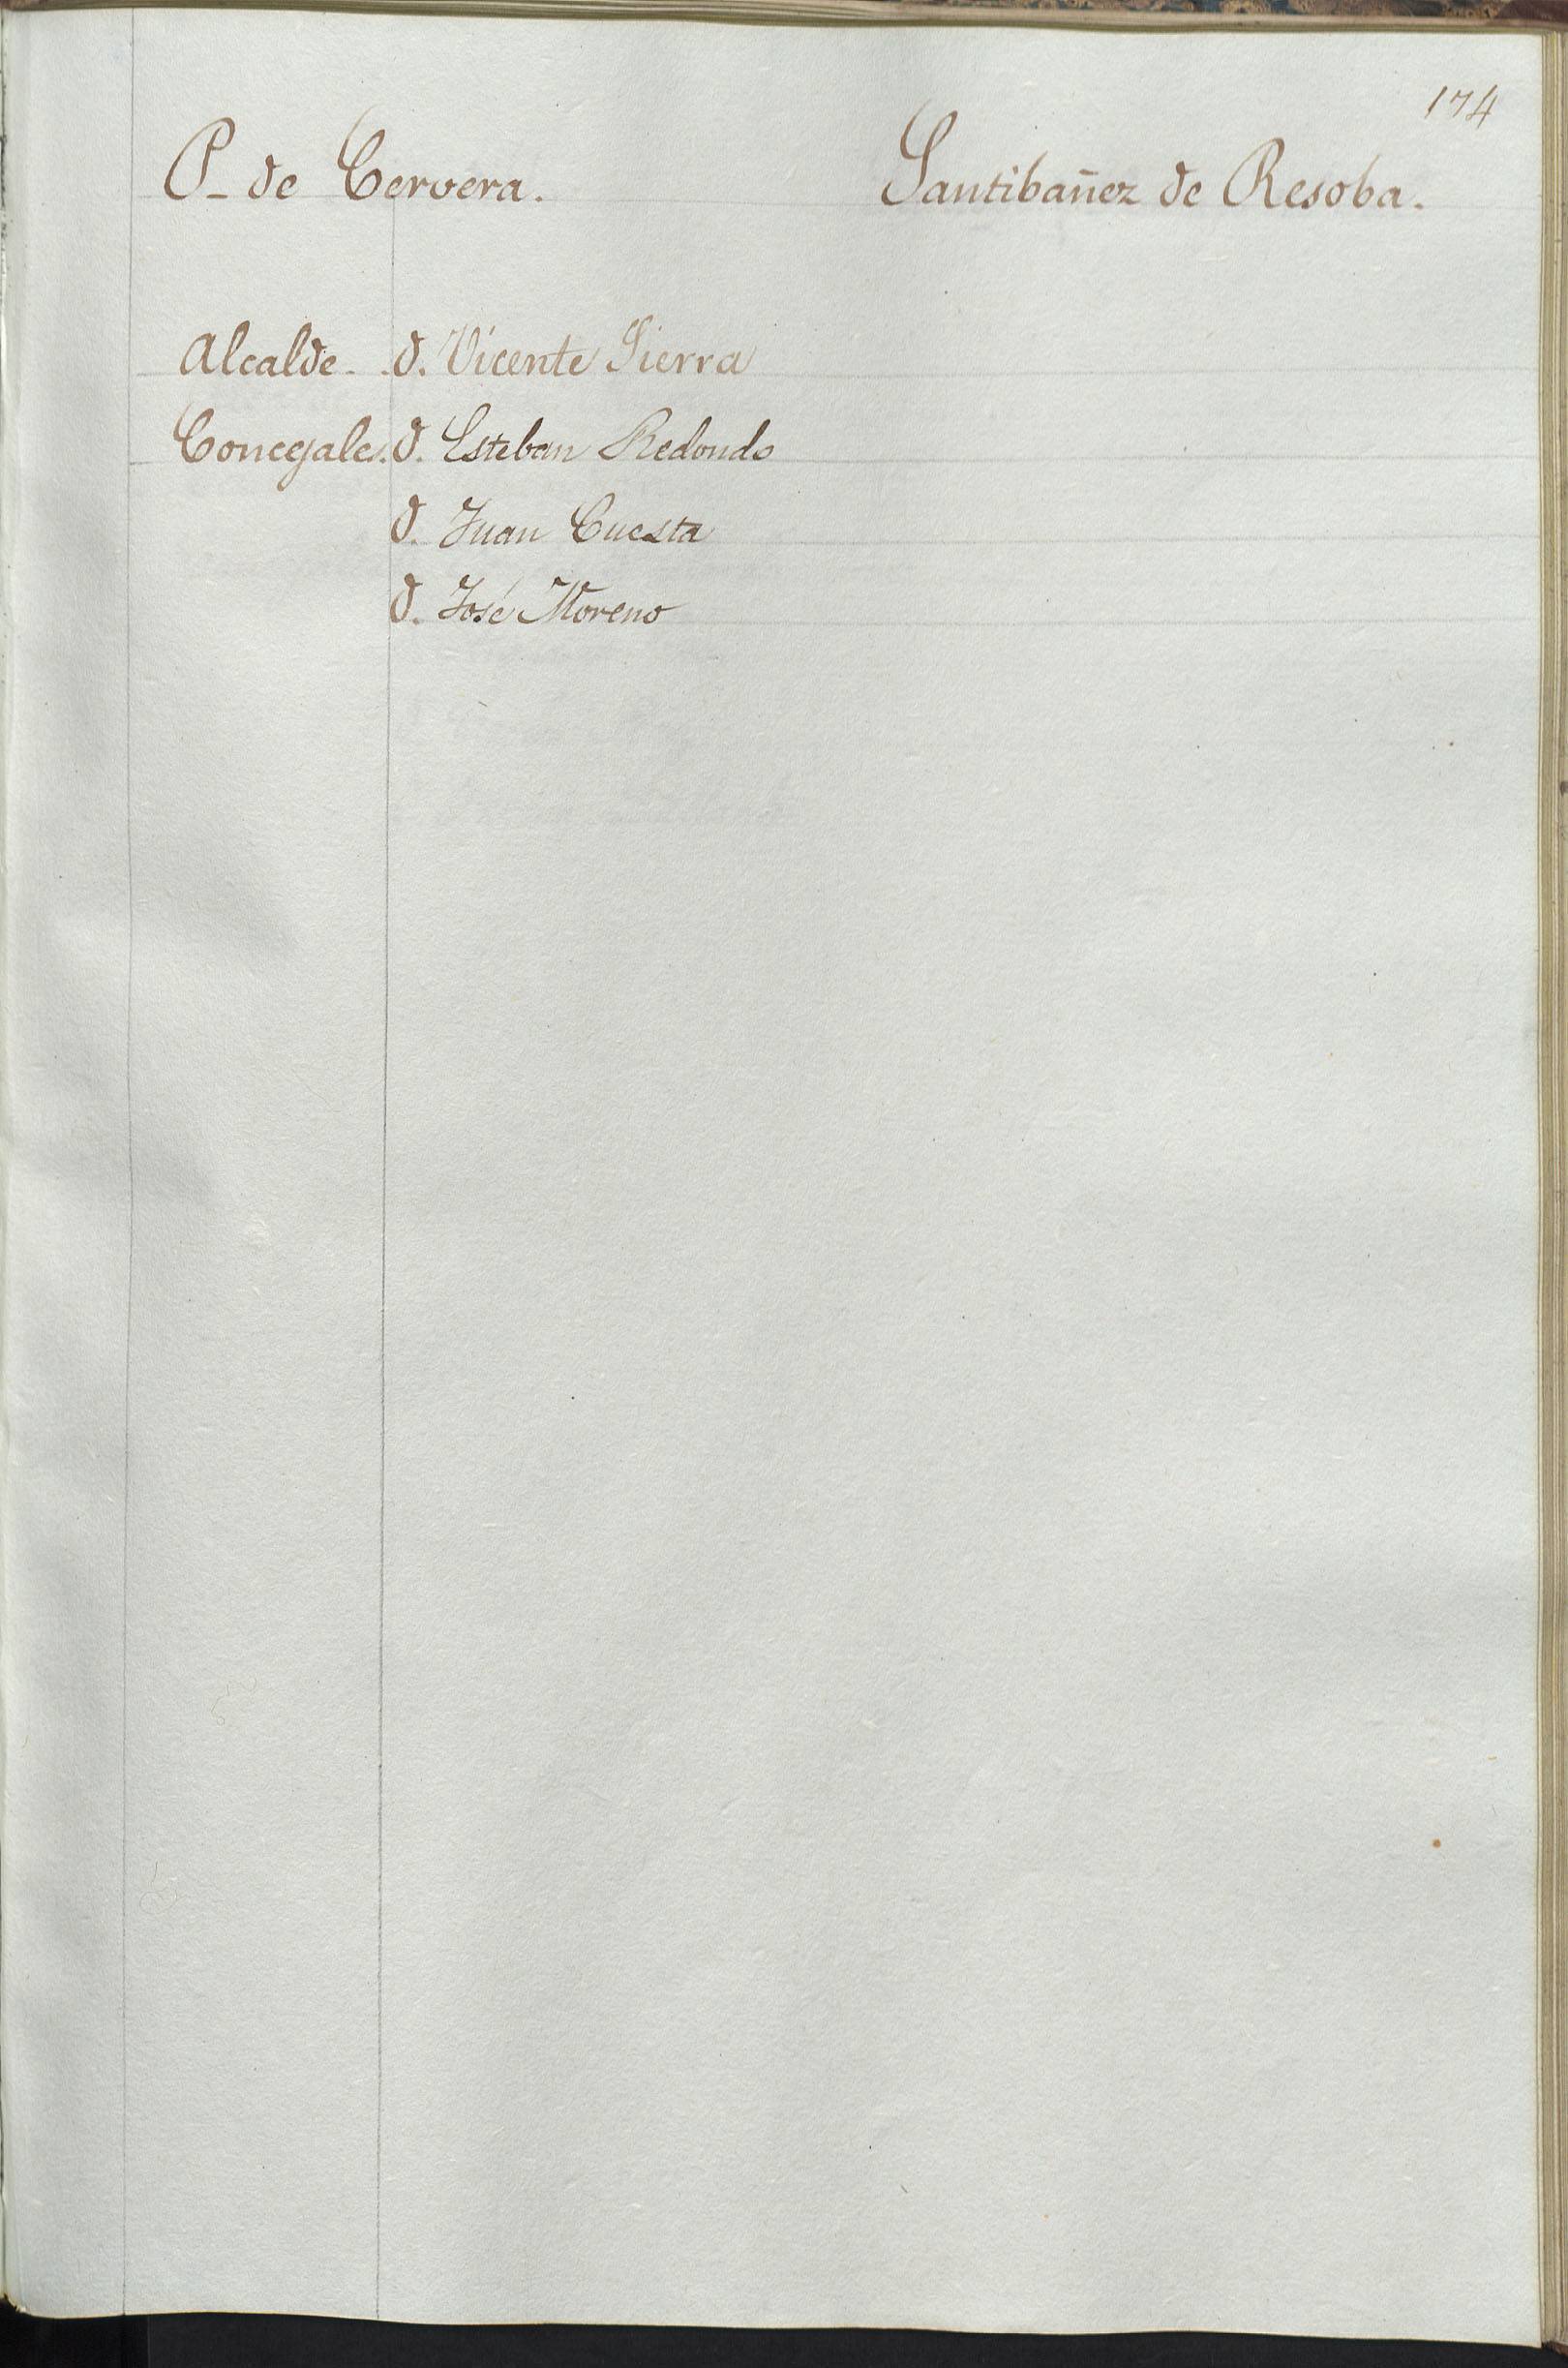 174
P- de Cervera. Santibañez de Resoba.
Alcalde - . D. Vicente Sierra
Concegales. D. Esteban Redondo
D. Juan Cuesta
D. José Moreno